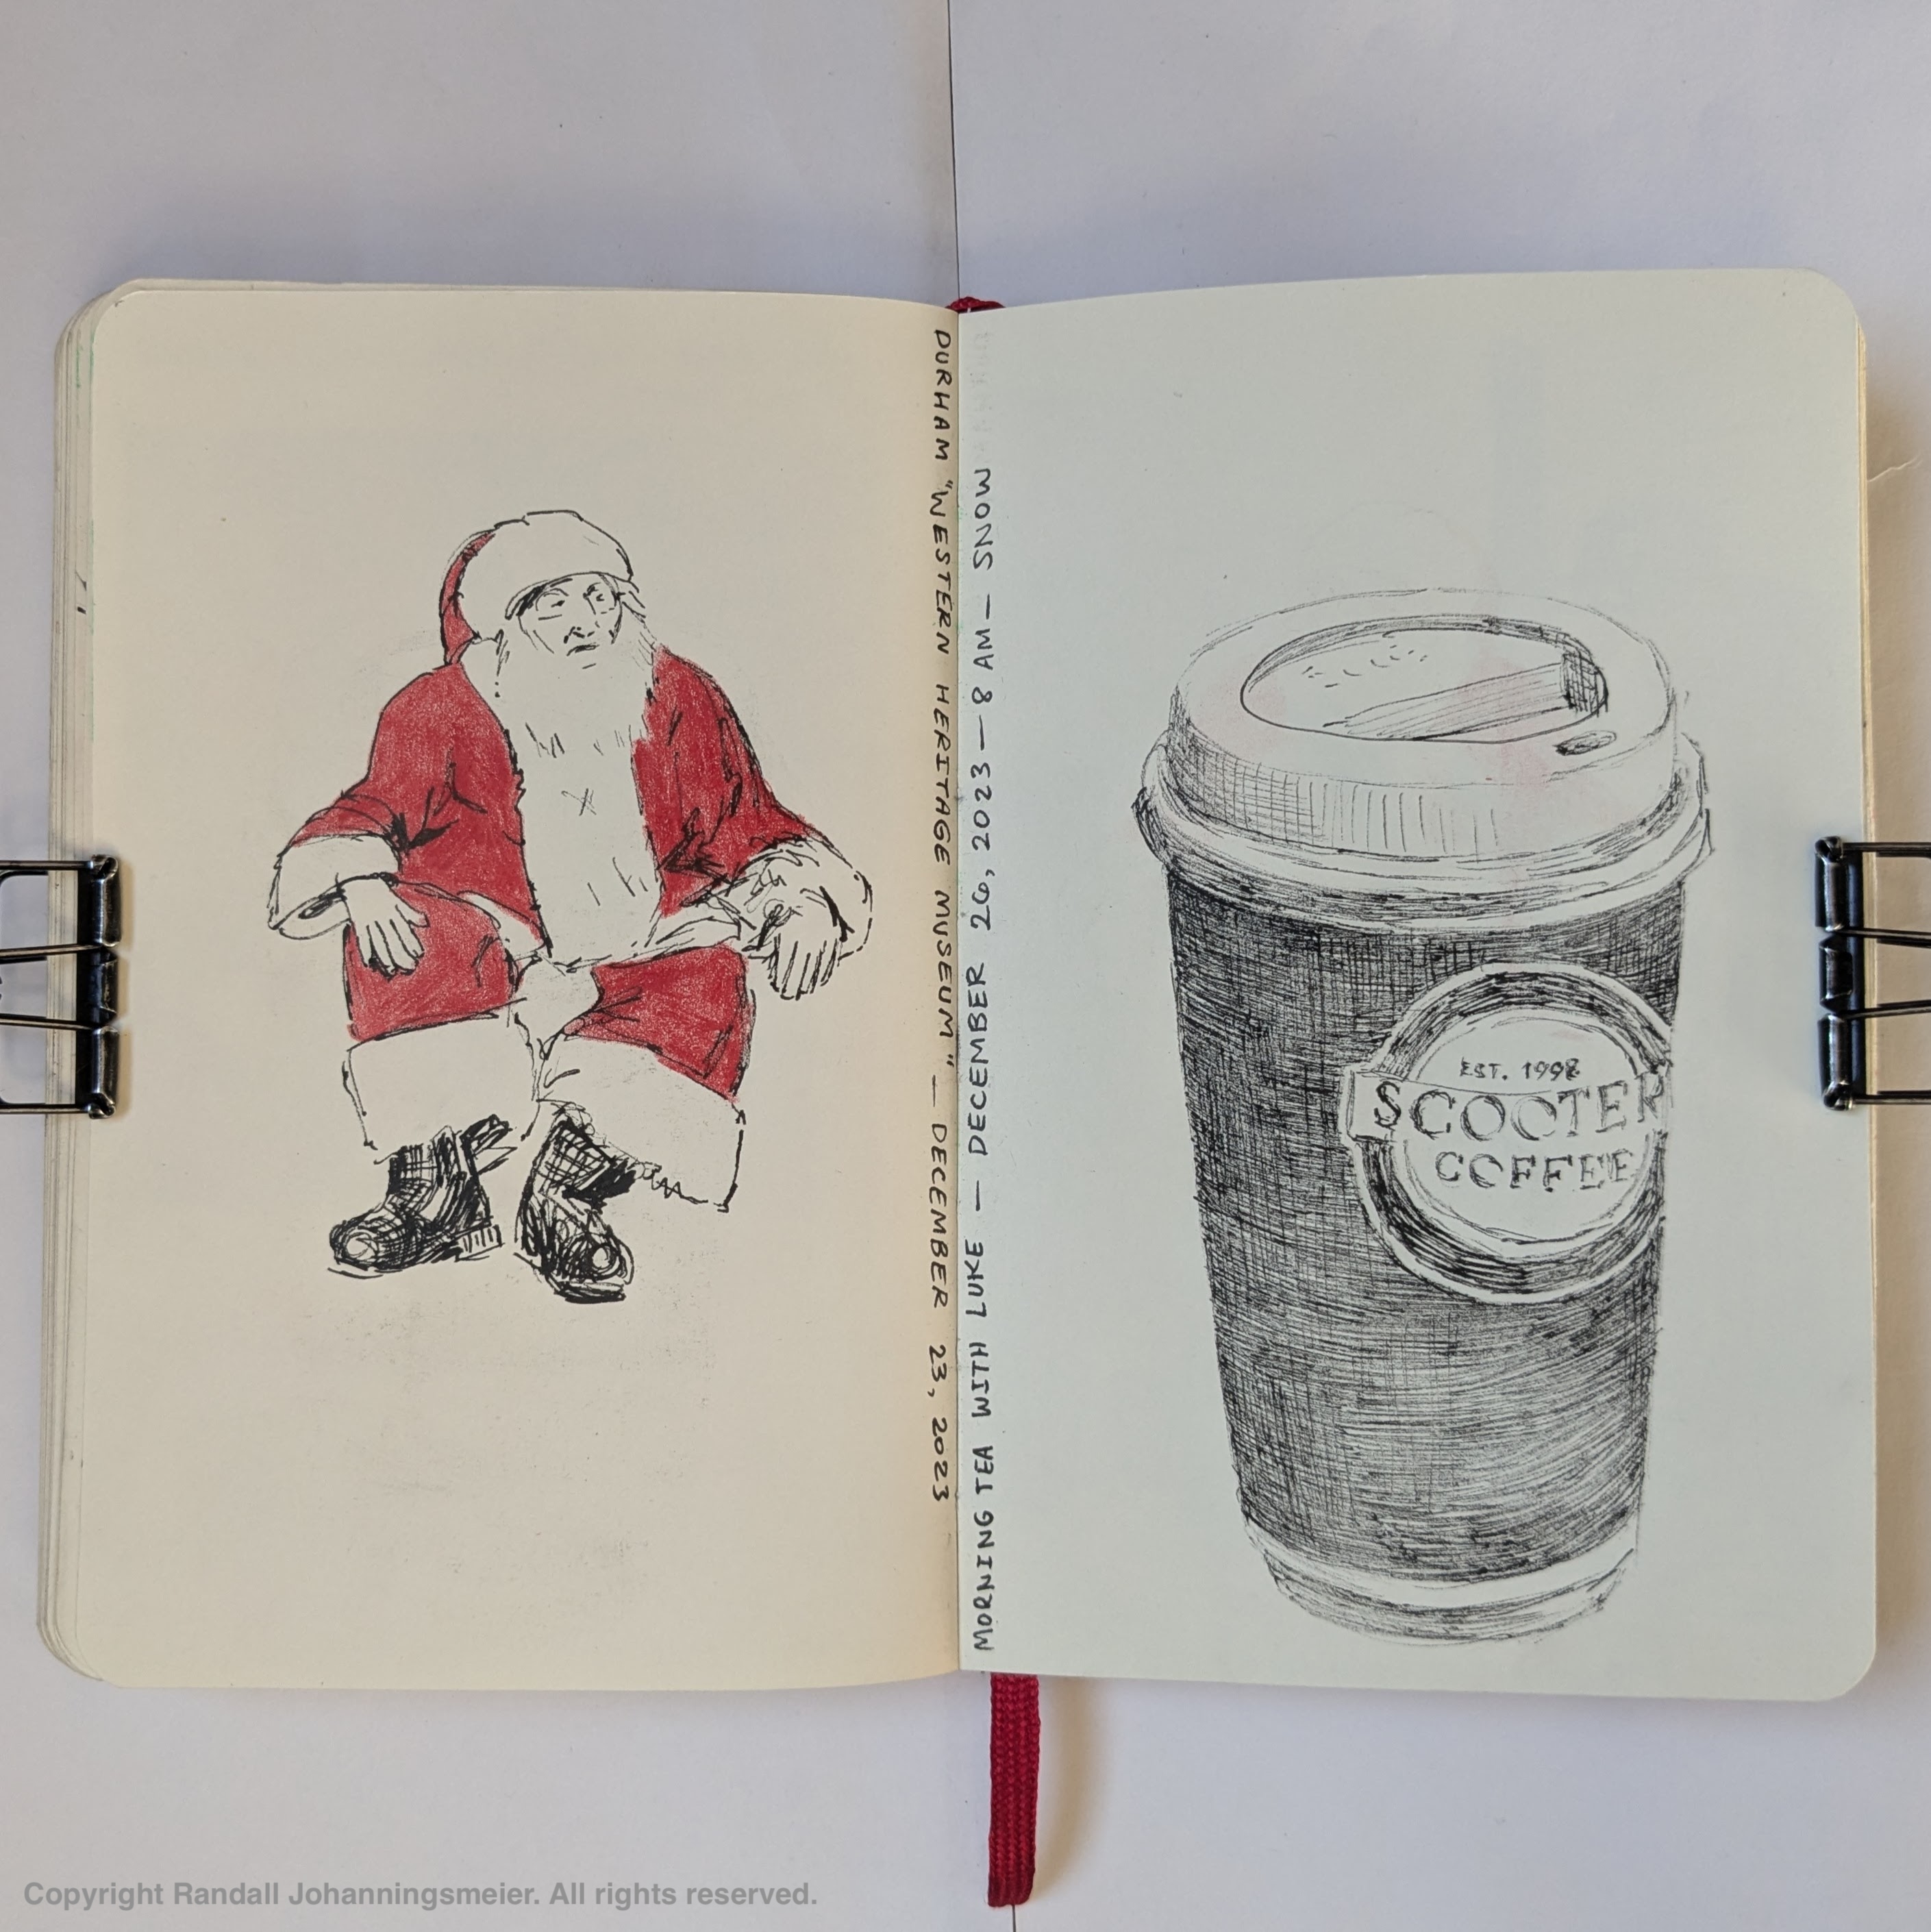 DURHAM "WESTERN HERITAGE MUSEUM" — DECEMBER 23, 2023
MORNING TEA WITH LUKE — DECEMBER 26, 2023 — 8 AM — SNOW
EST. 1998
SCOOTER
COFFEE
Copyright Randall Johanningsmeier. All rights reserved.